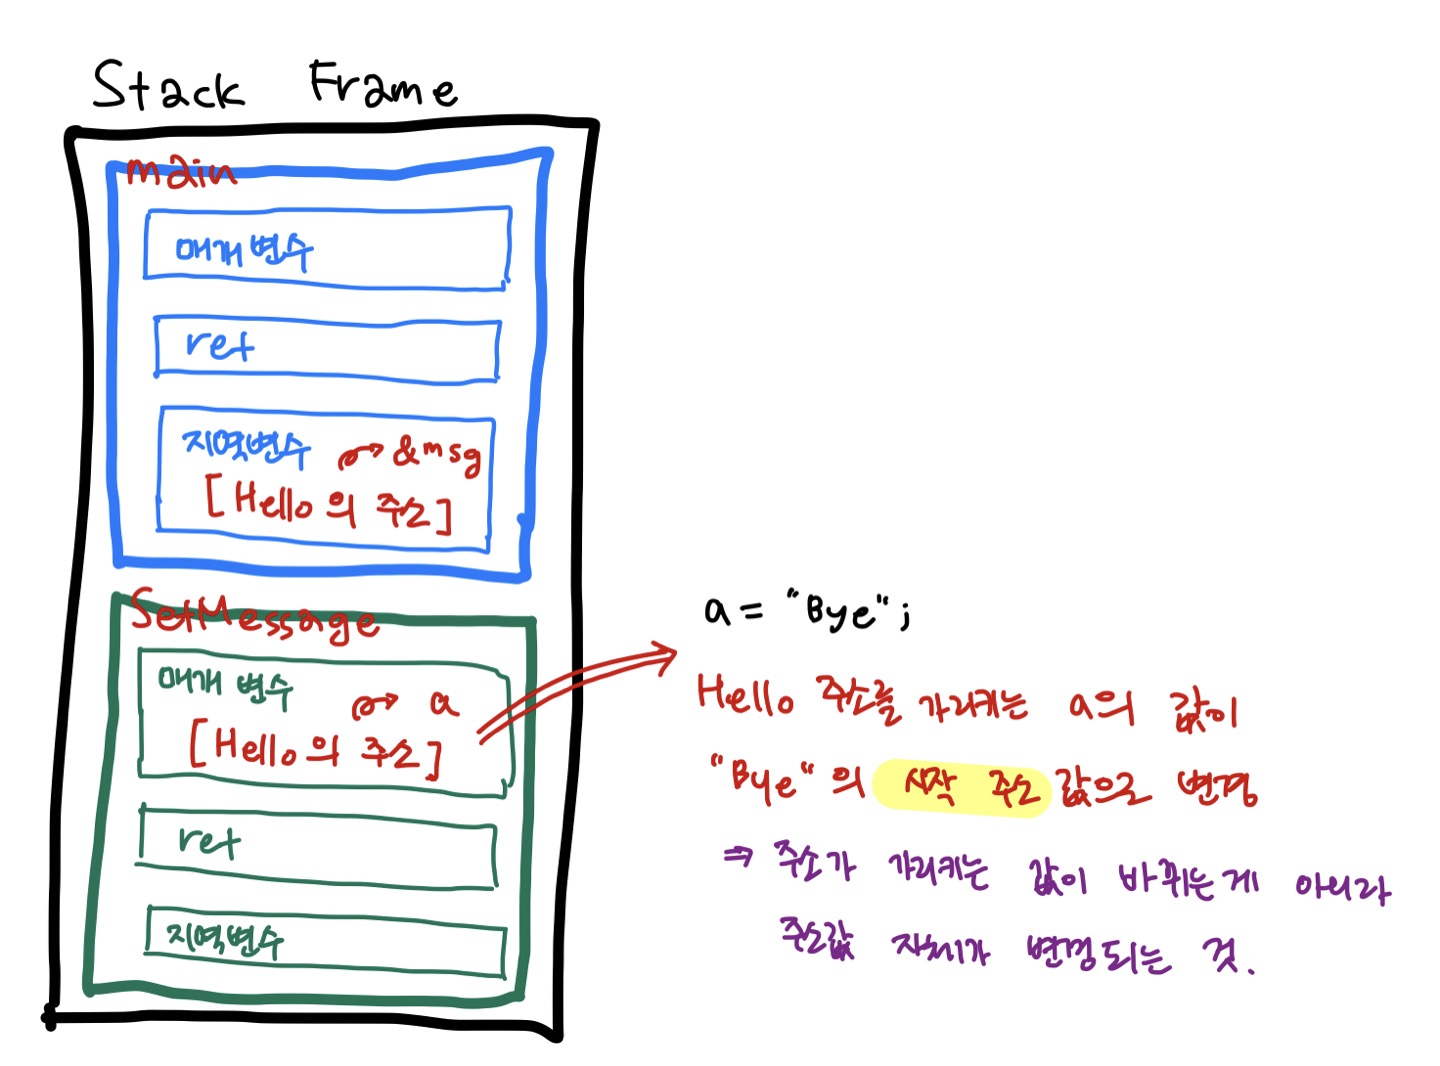 Stack Frame
main
매개변수
ret
지역변수 → &msg
[Hello의 주소]
SetMessage
매개 변수 → a
[Hello의 주소]
ret
지역변수
a = "Bye";
Hello 주소를 가리키는 a의 값이
"Bye"의 시작 주소 값으로 변경
⇒ 주소가 가리키는 값이 바뀌는게 아니라
주소값 자체가 변경되는 것.